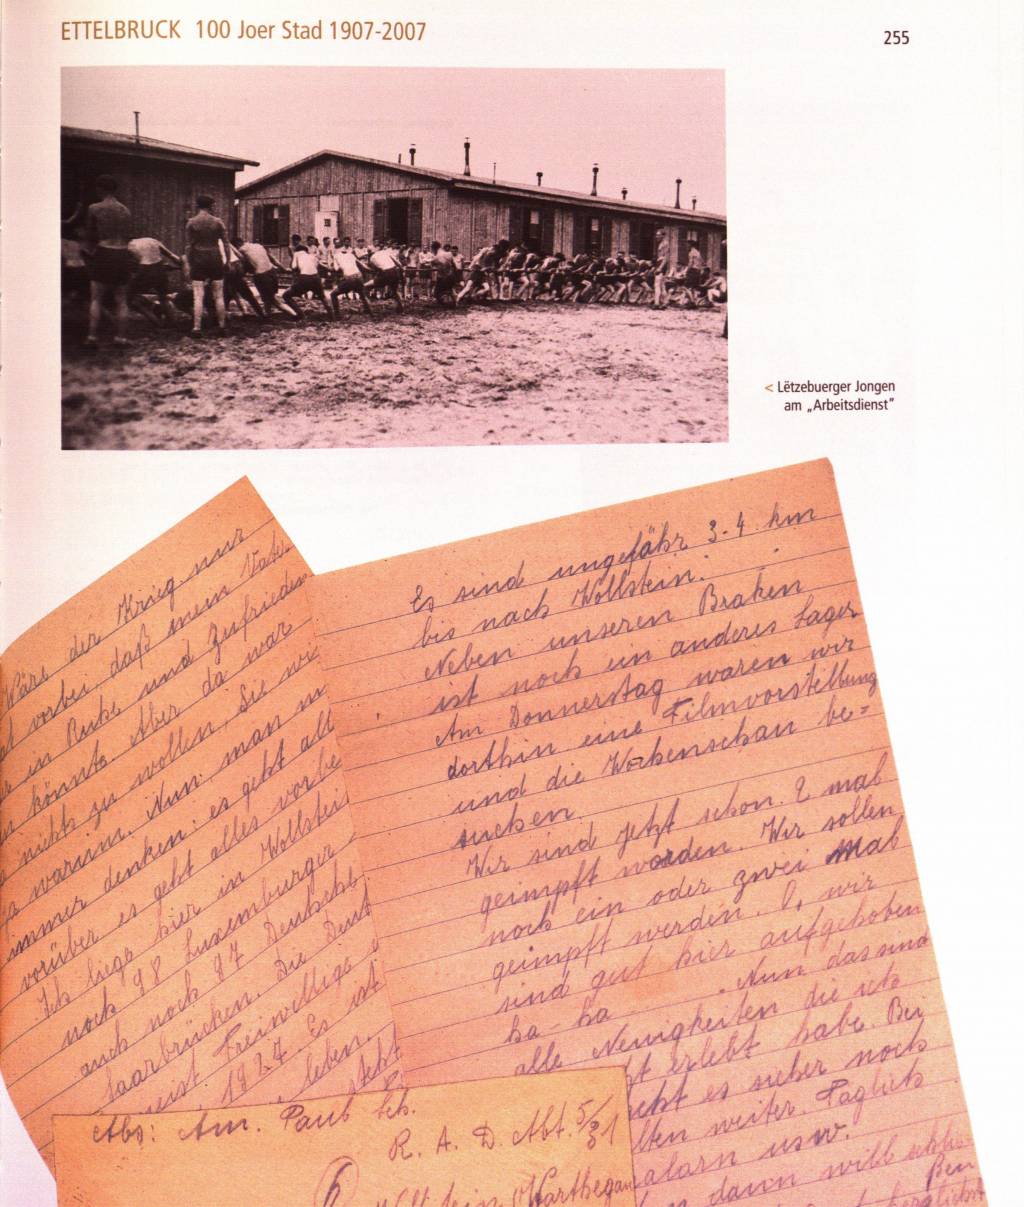 ETTELBRUCK 100 Joer Stad 1907-2007
255
< Lëtzebuerger Jongen
am „Arbeitsdienst"
Wäre der Krieg nur
vorbei daß mein Vater
in Ruhe und Zufrieden
könnte. Aber da war
nichts zu wollen, Sie wi
warum. Nun man m
immer denken: es geht all
vorüber es geht alles vorbe
Ich liege hier in Wollstei
noch 98 Luxemburger
auch noch 87 Deutsche
Saarbrücken. Die Deut
meist Freiwillige
1927. Es ist
leben.
steht
Es sind ungefähr 3-4 km
bis nach Wollstein.
Neben unseren Braken
ist noch ein anderes Lager
Am Donnerstag waren wir
dorthin eine Filmvorstellung
und die Wochenschau be=
suchen.
Wir sind jetzt schon 2 mal
geimpft worden. Wir sollen
noch ein oder zwei Mal
geimpft werden. O, wir
sind gut hier aufgehoben
ha-ha. Nun das sind
alle Neuigkeiten die ich
erlebt habe. Bei
es sicher noch
weiter. Täglich
alarm usw.
dann will
Abs: Am. Paul
R. A. D. Abt. 5/
Wollstein (Warthegau